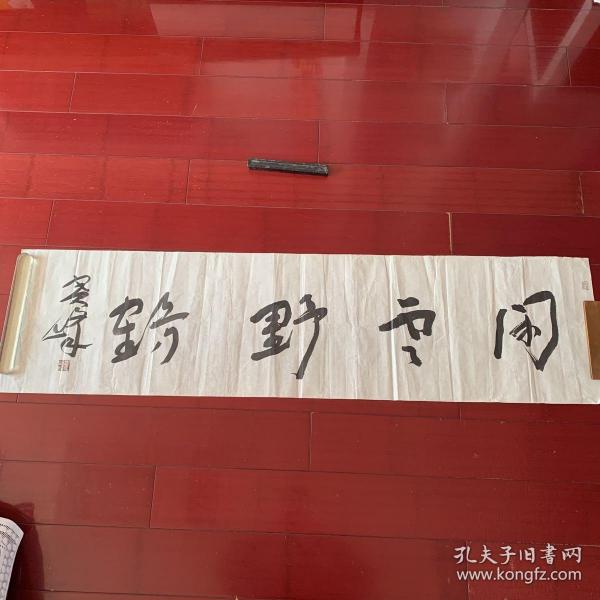 闲云野鹤
孔夫子旧书网
www.kongfz.com